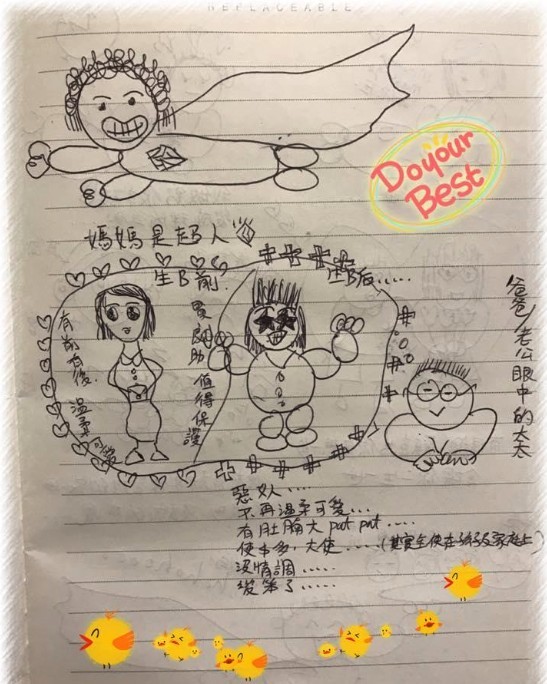 REPLACEABLE
Do your
Best
媽媽是超人
生B前
生B后.....
有前有後 溫柔可愛
要閣助 值得保護
爸爸/老公眼中的太太
惡女人....
不再溫柔可愛...
有肚腩大 pat pat ....
使多, 大使 ..... (其實全使在孩子及家庭上)
沒情調.....
變笨了.....